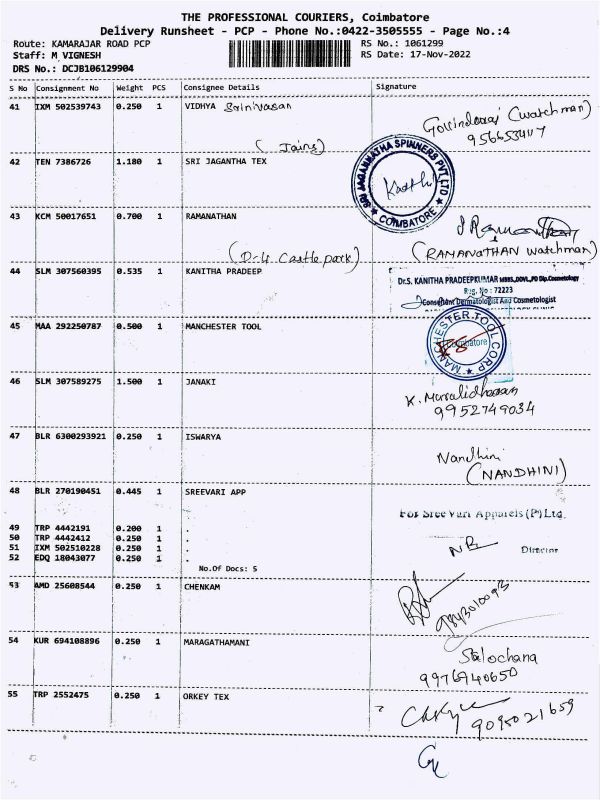 THE PROFESSIONAL COURIERS, Coimbatore
Delivery Runsheet - PCP - Phone No.:0422-3505555 - Page No.:4
Route: KAMARAJAR ROAD PCP
Staff: M VIGNESH
DRS No.: DCJB106129904
RS No.: 1061299
RS Date: 17-Nov-2022
S No Consignment No Weight PCS Consignee Details Signature
41 IXM 502539743 0.250 1 VIDHYA Srinivasan
(Jains)
Govindaraj (watchman)
42 TEN 7386726 1.180 1 SRI JAGANTHA TEX
SRI JAGANNATHA SPINNERS PVT LTD
COIMBATORE
43 KCM 50017651 0.700 1 RAMANATHAN
(D-4 Castle park)
(RAMANATHAN watchman)
44 SLM 307560395 0.535 1 KANITHA PRADEEP
Dr.S. KANITHA PRADEEPKUMAR MBBS.,DDVL.,PG Dip.Cosmetology
Reg. No : 72223
Consultant Dermatologist And Cosmetologist
45 MAA 292250787 0.500 1 MANCHESTER TOOL
MANCHESTER TOOL CORP
Coimbatore
46 SLM 307589275 1.500 1 JANAKI
K. Muralidharan
9952749034
47 BLR 6300293921 0.250 1 ISWARYA
Nandhini
(NANDHINI)
48 BLR 270190451 0.445 1 SREEVARI APP
For Sree Vari Apparels (P) Ltd.
Director
49 TRP 4442191 0.200 1 .
50 TRP 4442412 0.250 1 .
51 IXM 502510228 0.250 1 .
52 EDQ 18043077 0.250 1 .
No.Of Docs: 5
53 AMD 25608544 0.250 1 CHENKAM
9843010093
54 KUR 694108896 0.250 1 MARAGATHAMANI
Salochana
9976940650
55 TRP 2552475 0.250 1 ORKEY TEX
9095021659